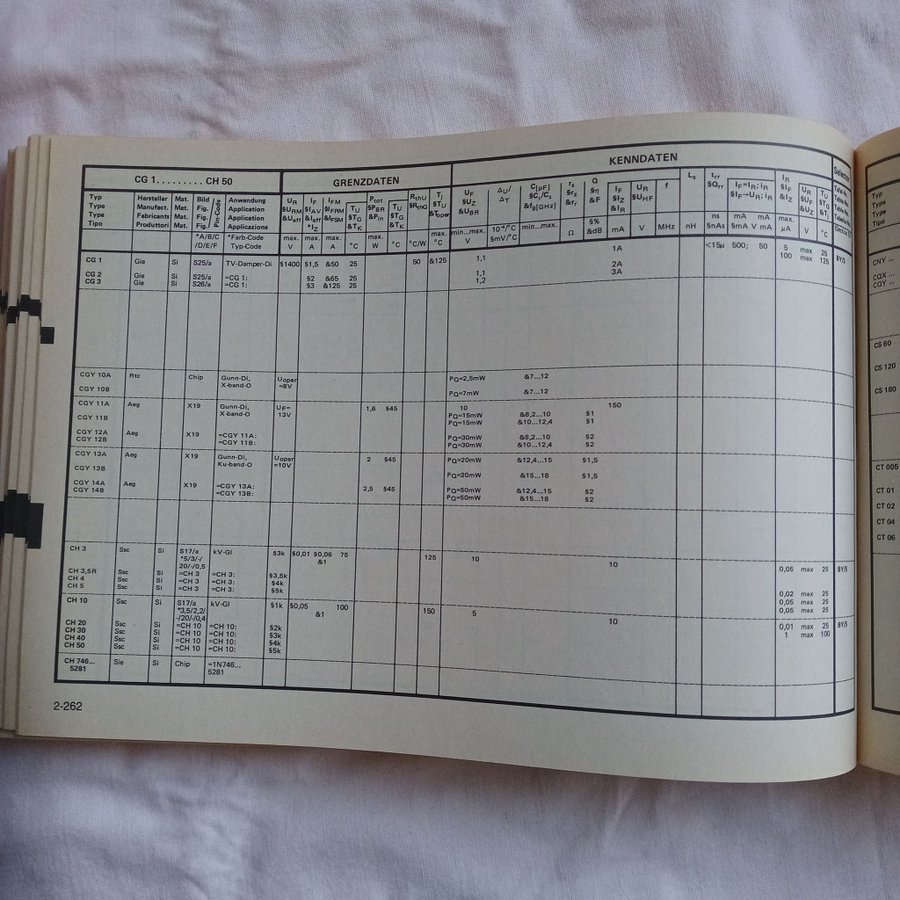 CG 1......... CH 50 GRENZDATEN KENNDATEN
Typ Hersteller Mat. Bild Anwendung
Type Manufact. Mat. Fig. Application
Type Fabricants Mat. Fig. Application
Tipo Produttori Mat. Fig. Applicazione
Pin-Code
*A/B/C *Farb-Code
/D/E/F Typ-Code
UR IF IFM TU Ptot TU RthU Tj
§URM §IAV §IFRM §TG §PBR §TG §RthG §TU
&Ueff &Ieff &IFSM &TK &Pin &TK &Toper
&IZ
max. max. max. °C max. °C °C/W max.
V A A W °C
UF ΔU/ΔT C[pF] rs Q IF UR f Ls trr IF=IR; iR IR UR TU
§UZ §C1/C2 §rz §η §IZ §UHF §Qrr §IF→UR; iR §IF §UF §TG
&UBR &fg[GHz] &rr &F &IR &IZ &UZ &TK
min...max. 10⁻⁴/°C min...max. Ω §% mA V MHz nH ns mA mA mA max. V °C
V §mV/°C &dB §nAs §mA V mA µA
CG 1 Gie Si S25/a TV-Damper-Di §1400 §1,5 &50 25 50 &125 1,1 1A <15µ 500; 50 5 max 25 BY/3
100 max 125
CG 2 Gie Si S25/a =CG 1: §2 &65 25 1,1 2A
CG 3 Gie Si S26/a =CG 1: §3 &125 25 1,2 3A
CGY 10A Rtc Chip Gunn-Di, Uoper PQ=2,5mW &7...12
X-band-O =8V
CGY 10B PQ=7mW &7...12
CGY 11A Aeg X19 Gunn-Di, UF= 1,6 §45 10 150
X-band-O 13V PQ=15mW &8,2...10 §1
CGY 11B PQ=15mW &10...12,4 §1
CGY 12A Aeg X19 =CGY 11A: PQ=30mW &8,2...10 §2
CGY 12B =CGY 11B: PQ=30mW &10...12,4 §2
CGY 13A Aeg X19 Gunn-Di, Uoper 2 §45 PQ=20mW &12,4...15 §1,5
Ku-band-O =10V
CGY 13B PQ=20mW &15...18 §1,5
CGY 14A Aeg X19 =CGY 13A: 2,5 §45 PQ=50mW &12,4...15 §2
CGY 14B =CGY 13B: PQ=50mW &15...18 §2
CH 3 Ssc Si S17/a kV-Gl §3k §0,01 §0,06 75 125 10 10 0,05 max 25 BY/5
*5/3/-/ &1
20/-/0,5
CH 3,5R Ssc Si =CH 3 =CH 3: §3,5k
CH 4 Ssc Si =CH 3 =CH 3: §4k 0,02 max 25
CH 5 Ssc Si =CH 3 =CH 3: §5k 0,05 max 25
0,05 max 25
CH 10 Ssc Si S17/a kV-Gl §1k §0,05 100 150 5 10 0,01 max 25 BY/5
*3,5/2,2/ &1 1 max 100
-/20/-/0,4
CH 20 Ssc Si =CH 10 =CH 10: §2k
CH 30 Ssc Si =CH 10 =CH 10: §3k
CH 40 Ssc Si =CH 10 =CH 10: §4k
CH 50 Ssc Si =CH 10 =CH 10: §5k
CH 746... Sie Si Chip =1N746...
5281 5281
2-262
CNY ...
CQX ...
CQY ...
CS 60
CS 120
CS 180
CT 005
CT 01
CT 02
CT 04
CT 06